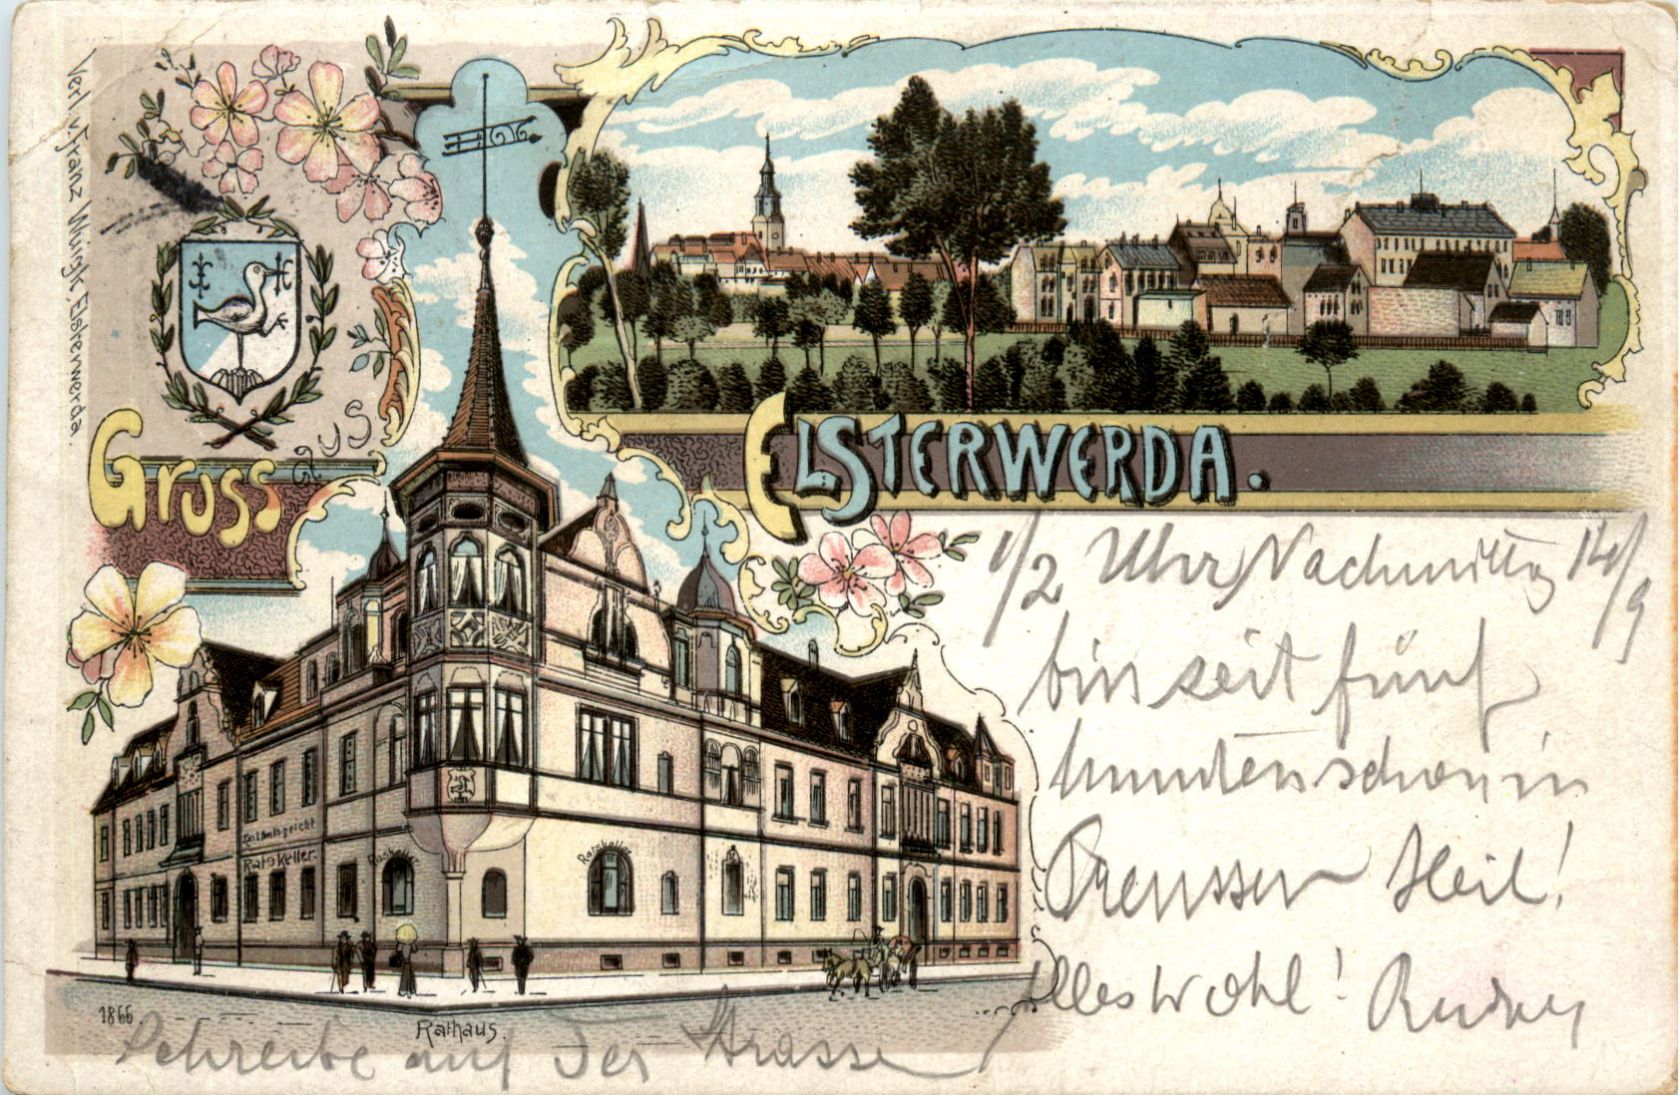 Verl. v. Franz Mürigk, Elsterwerda.
Gruss aus
ELSTERWERDA.
1/2 Uhr Nachmittg 14/9
bin seit fünf
Stunden schon in
Preussen Heil!
Alles Wohl!
Ratskeller.
Ratskeller
Ratskeller
1866.
Rathaus.
Schreibe auf der Strasse